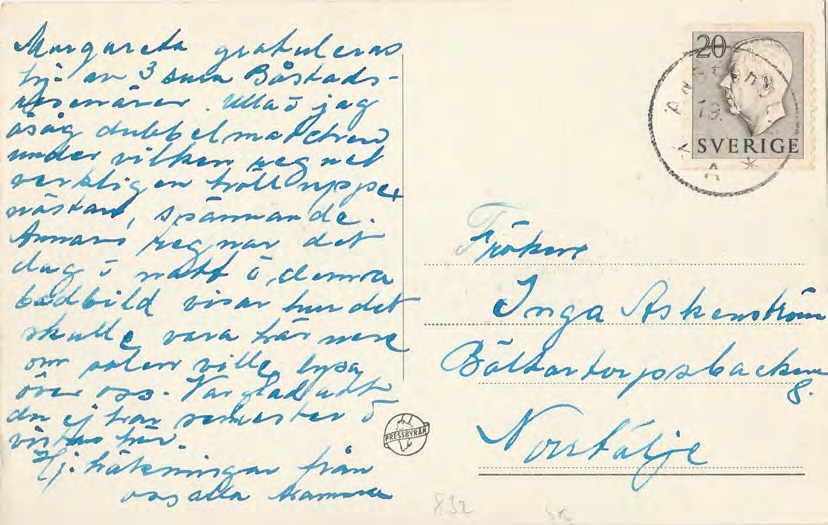 Margareta gratuleras
hj. av 3 sura Båstads-
resenärer. Ulla o jag
åsåg dubbelmatchen
under vilken regnet
verkligen höll uppe,
nästan, spännande.
Annars regnar det
dag o natt o denna
badbild visar hur det
skulle vara här nere
om solen ville lysa
över oss. Var glad att
du ej har semester o
vistas här.
Hj. hälsningar från
oss alla
20
SVERIGE
A
PRESSBYRÅN
Fröken
Inga Askenström
Bältartorpsbacken
8.
Norrtälje
832